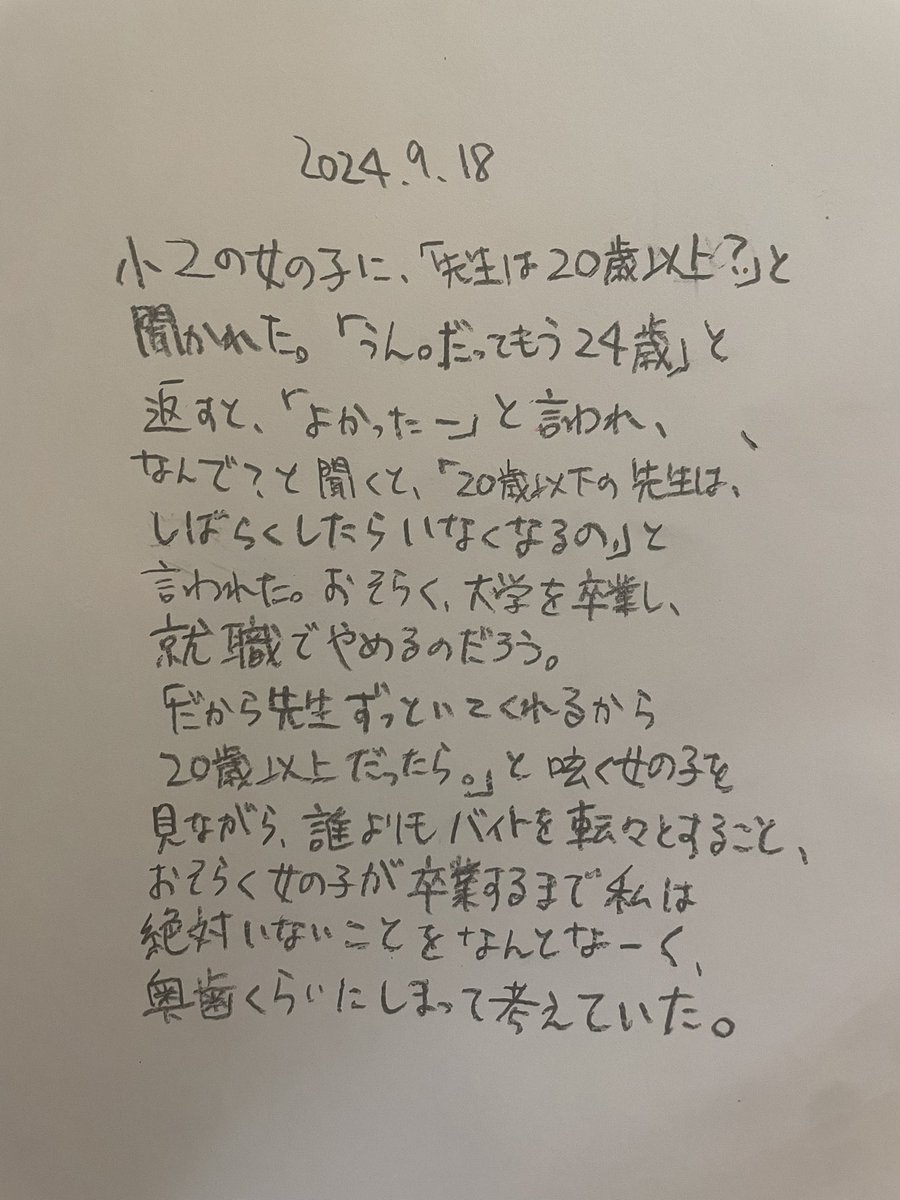 2024.9.18
小2の女の子に、「先生は20歳以上?」と
聞かれた。「うん。だってもう24歳」と
返すと、「よかったー」と言われ、
なんで?と聞くと、「20歳以下の先生は、
しばらくしたらいなくなるの」と
言われた。おそらく、大学を卒業し、
就職でやめるのだろう。
「だから先生ずっといてくれるから
20歳以上だったら。」と呟く女の子を
見ながら、誰よりもバイトを転々とすること、
おそらく女の子が卒業するまで私は
絶対いないことをなんとなーく、
奥歯くらいにしまって考えていた。